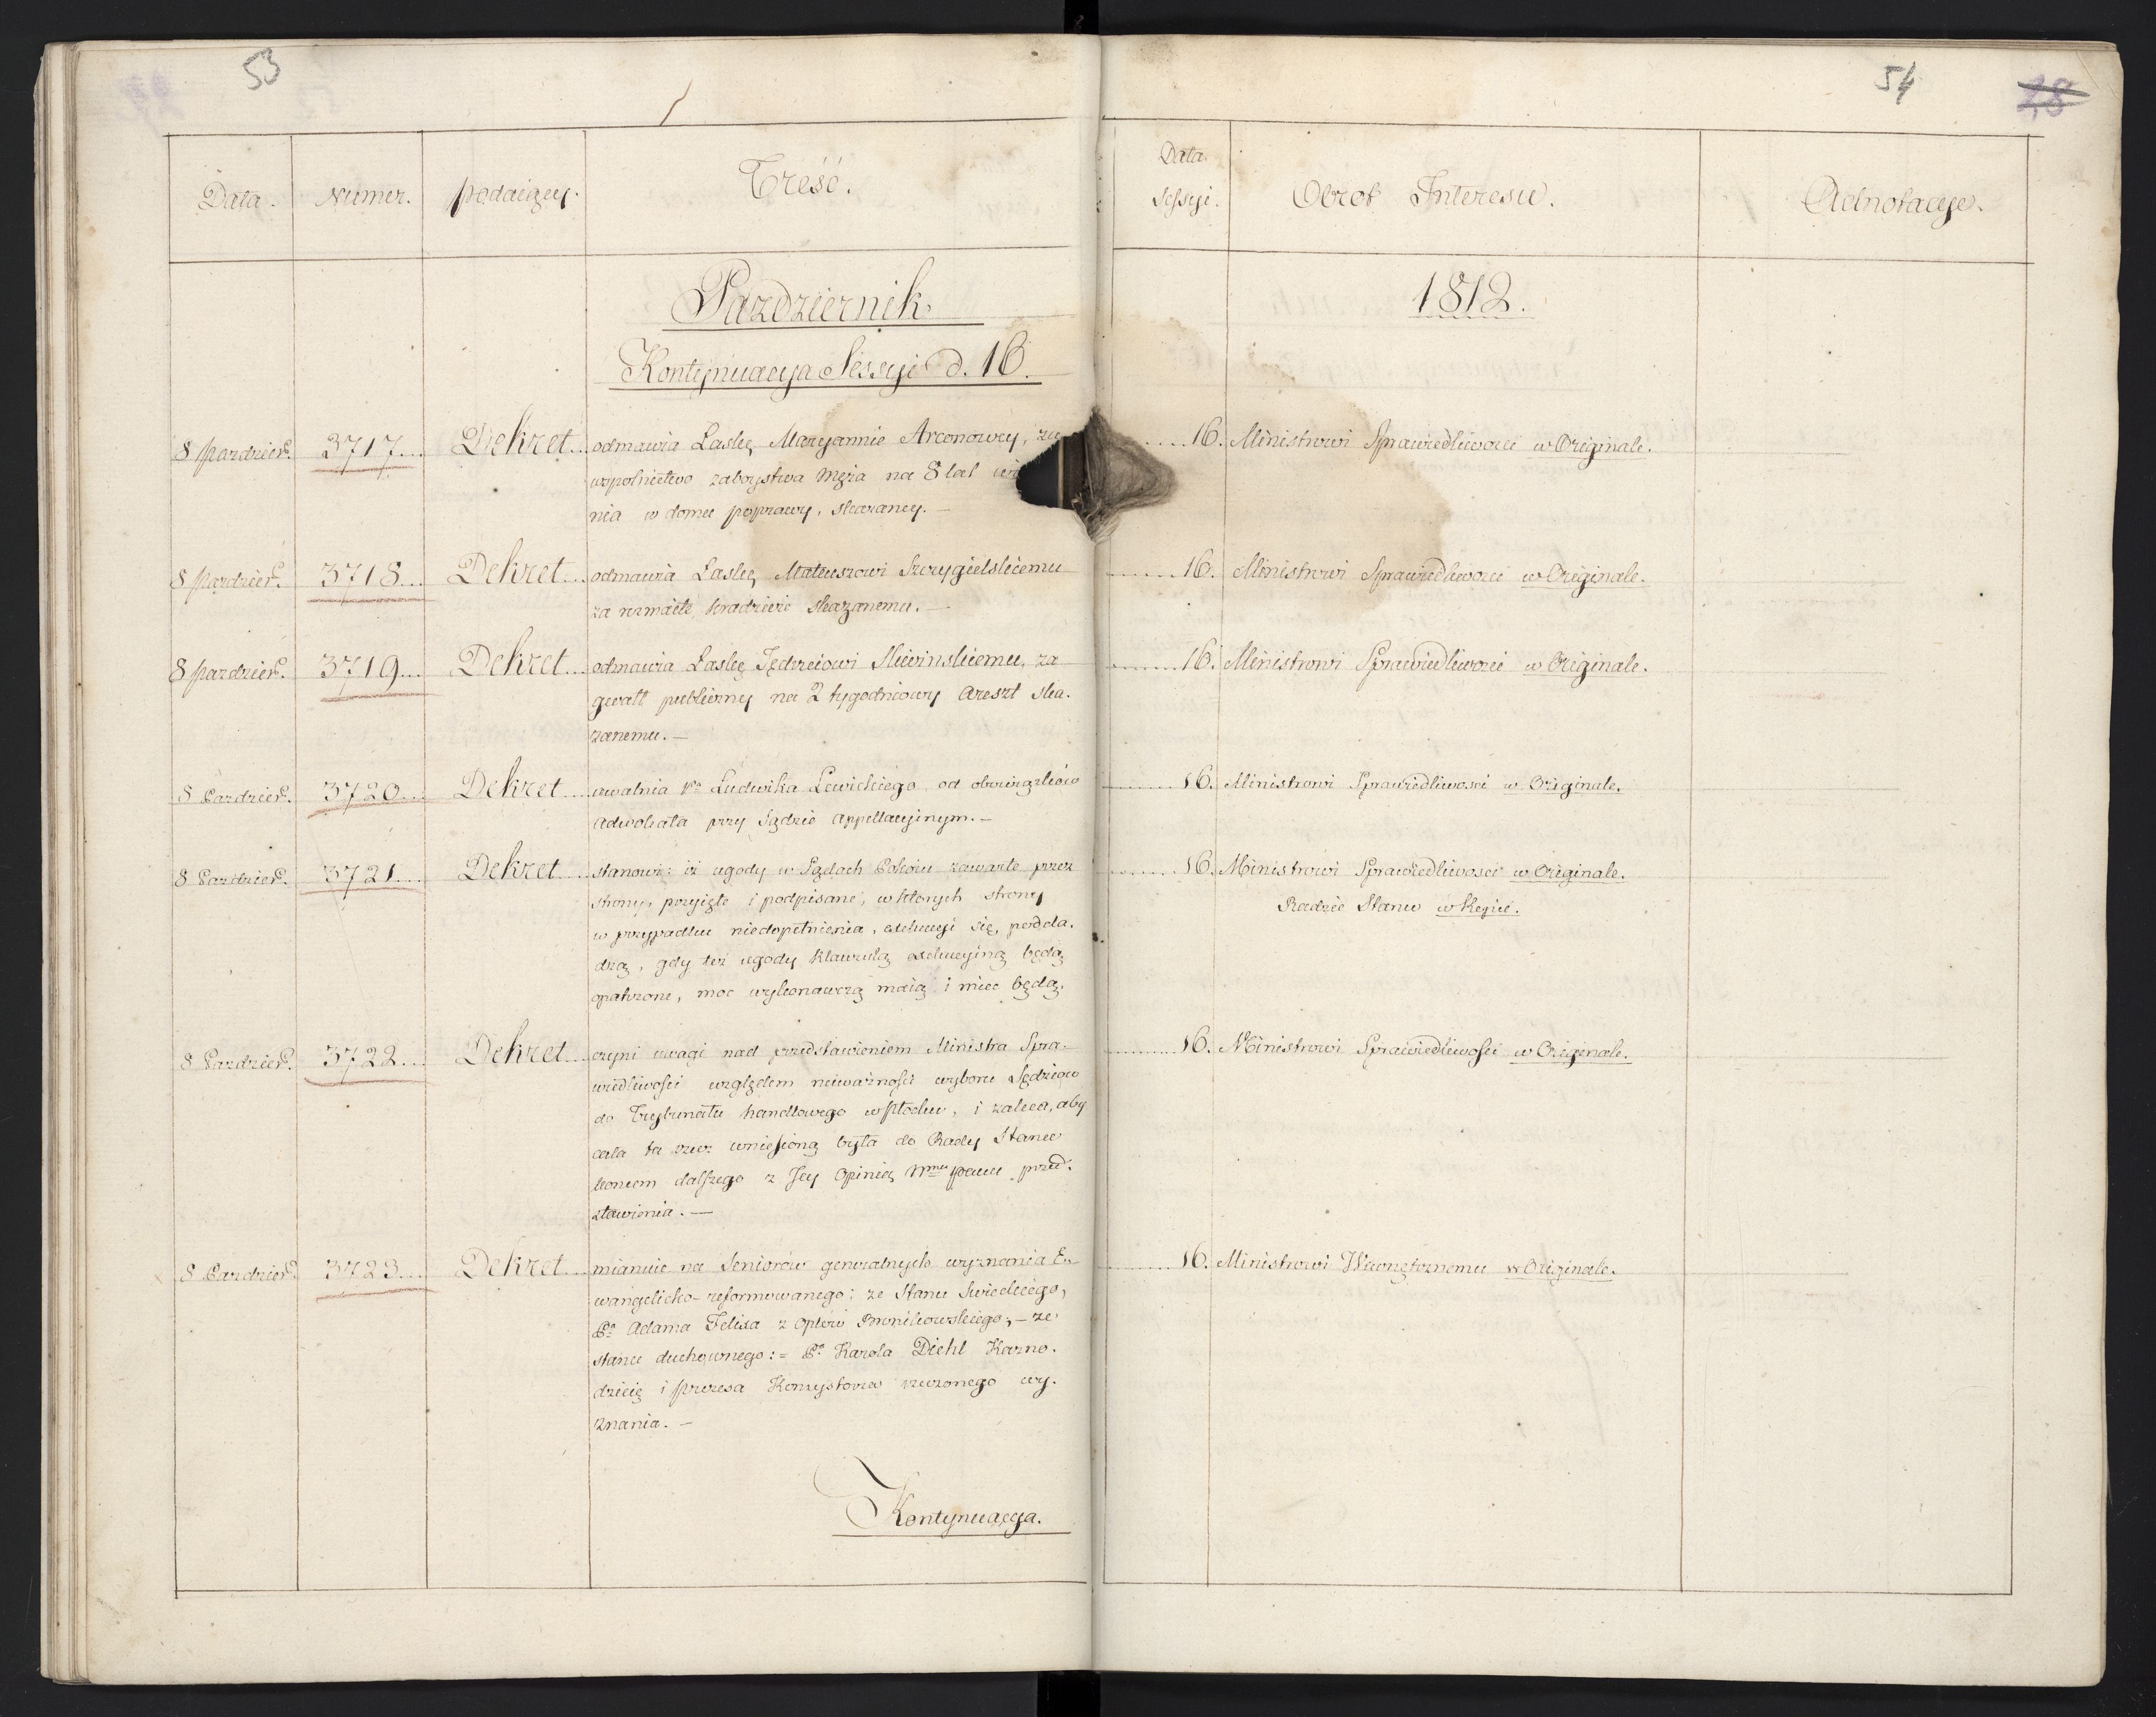 53
Data.
Numer.
podaiący.
Treść.
Pazdziernik.
Kontynuacya Sessyi d. 16.
8 Pazdzier.
3717....
Dekret...
odmawia Łaskę Maryannie Arconowey, za
wspolnictwo zaboystwa Męża na 8 lat
nia w domu poprawy, skazaney. —
8 Pazdzier.
3718...
Dekret...
odmawia Łaskę Mateuszowi Szczygielskiemu
za rozmaite kradzieże skazanemu. —
8 Pazdzier.
3719...
Dekret...
odmawia Łaskę Jędrzeiowi Sliwinskiemu, za
gwałt publiczny na 2 tygodniowy Areszt ska-
zanemu. —
8 Pazdzier.
3720...
Dekret....
uwalnia Pa Ludwika Lewickiego od obowiązków
Adwokata przy Sądzie Appellacyinym. —
8 Pazdzier.
3721....
Dekret....
stanowi: iż ugody w Sądach Pokoiu zawarte przez
strony, przyięte i podpisane, w których strony
w przypadku niedopełnienia, exekucyi się, podda-
dzą, gdy też ugody klauzulą exekucyiną będą
opatrzone, moc wykonawczą maią i mieć będą.
8 Pazdzier.
3722...
Dekret...
czyni uwagi nad przedstawieniem Ministra Spra-
wiedliwości względem nieważności wyboru Sędziow
do Trybunału handlowego w Płocku, i zaleca, aby
cała ta rzecz wniesioną była do Rady Stanu
koncem dalszego z Jey Opinią Nmu Panu przed-
stawienia. —
8 Pazdzier.
3723....
Dekret...
mianuie na Seniorów generalnych wyznania E-
wangelicko-reformowanego: ze Stanu Swieckiego,
Pa Adama Felixa z Bronikowskiego, — ze
stanu duchownego: = Pa Karola Diehl Kazno-
dzieię i Prezesa Konsystorza rzeczonego wy-
znania. —
Kontynuacya.
54
28
Data
Sessyi.
Obrot Interesu.
Adnotacye.
1812.
....16. Ministrowi Sprawiedliwosci w Originale.
....16. Ministrowi Sprawiedliwosci w Originale.
....16. Ministrowi Sprawiedliwosci w Originale.
....16. Ministrowi Sprawiedliwosci w Originale.
....16. Ministrowi Sprawiedliwosci w Originale.
Radzie Stanu w Kopii.
....16. Ministrowi Sprawiedliwości w Originale.
....16. Ministrowi Wewnętrznemu w Originale.